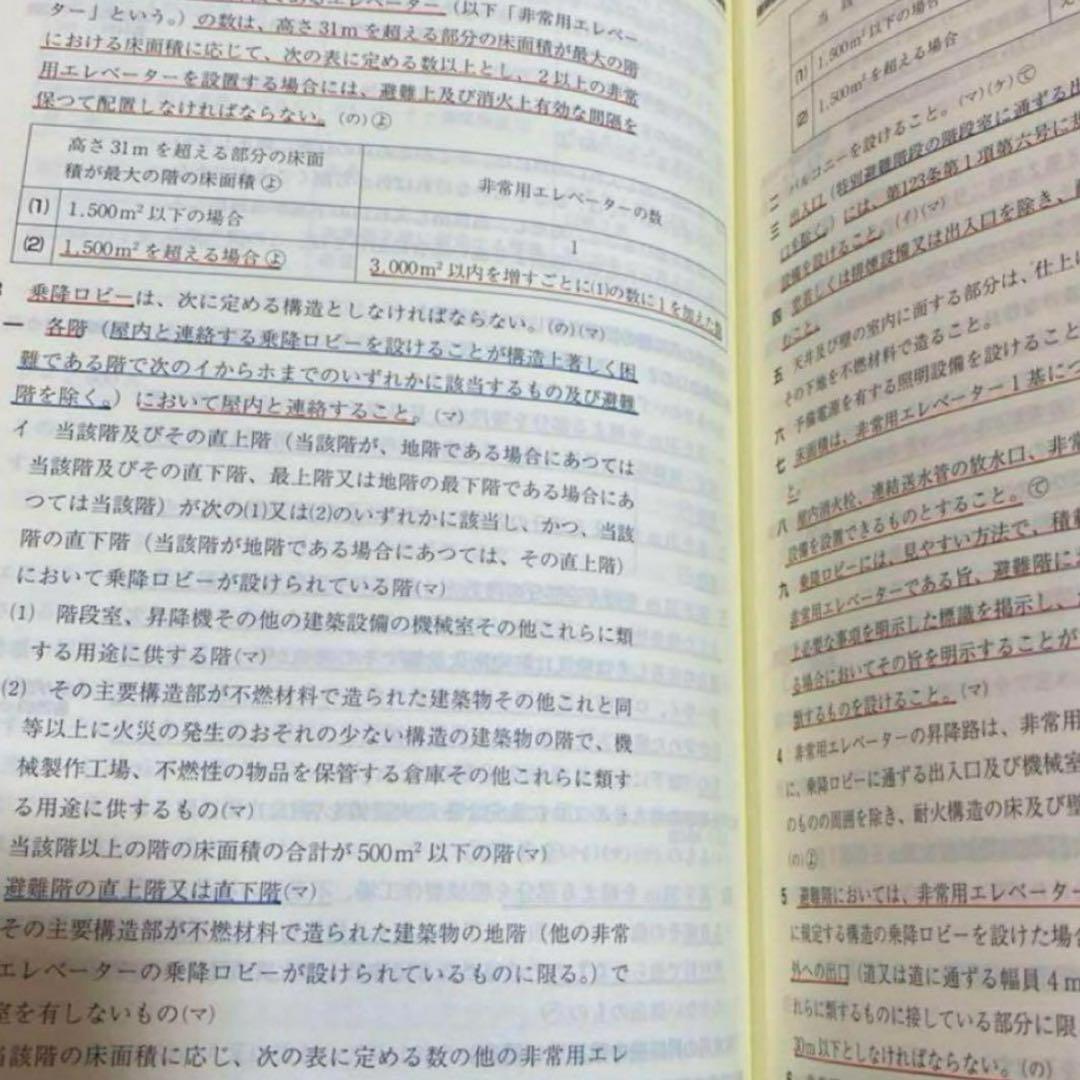 であるエレベーター（以下「非常用エレベー
ター」という。）の数は、高さ31mを超える部分の床面積が最大の階
における床面積に応じて、次の表に定める数以上とし、2以上の非常
用エレベーターを設置する場合には、避難上及び消火上有効な間隔を
保つて配置しなければならない。(の)㋵
高さ31mを超える部分の床面
積が最大の階の床面積㋵
非常用エレベーターの数
(1) 1,500m²以下の場合 1
(2) 1,500m²を超える場合㋵ 3,000m²以内を増すごとに(1)の数に1を加えた数
乗降ロビーは、次に定める構造としなければならない。(の)(マ)
一 各階（屋内と連絡する乗降ロビーを設けることが構造上著しく困
難である階で次のイからホまでのいずれかに該当するもの及び避難
階を除く。）において屋内と連絡すること。(マ)
イ 当該階及びその直上階（当該階が、地階である場合にあつては
当該階及びその直下階、最上階又は地階の最下階である場合にあ
つては当該階）が次の(1)又は(2)のいずれかに該当し、かつ、当該
階の直下階（当該階が地階である場合にあつては、その直上階）
において乗降ロビーが設けられている階(マ)
(1) 階段室、昇降機その他の建築設備の機械室その他これらに類
する用途に供する階(マ)
(2) その主要構造部が不燃材料で造られた建築物その他これと同
等以上に火災の発生のおそれの少ない構造の建築物の階で、機
械製作工場、不燃性の物品を保管する倉庫その他これらに類す
る用途に供するもの(マ)
当該階以上の階の床面積の合計が500m²以下の階(マ)
避難階の直上階又は直下階(マ)
その主要構造部が不燃材料で造られた建築物の地階（他の非常
エレベーターの乗降ロビーが設けられているものに限る。）で
室を有しないもの(マ)
当該階の床面積に応じ、次の表に定める数の他の非常用エレ
(1) 1,500m²以下の場合
(2) 1,500m²を超える場合
二 バルコニーを設けること。(マ)(ケ)㋢
三 出入口（特別避難階段の階段室に通ずる出
口を除く。）には、第123条第1項第六号に規
設備を設けること。(イ)(マ)
四 窓若しくは排煙設備又は出入口を除き、
むこと。
五 天井及び壁の室内に面する部分は、仕上げ
その下地を不燃材料で造ること。
六 予備電源を有する照明設備を設けること
七 床面積は、非常用エレベーター1基につ
と。
八 屋内消火栓、連結送水管の放水口、非常
設備を設置できるものとすること。㋢
九 乗降ロビーには、見やすい方法で、積載
非常用エレベーターである旨、避難階に
ト必要な事項を明示した標識を掲示し、
る場合においてその旨を明示することが
類するものを設けること。(マ)
4 非常用エレベーターの昇降路は、非常用
に、乗降ロビーに通ずる出入口及び機械室
のものの周囲を除き、耐火構造の床及び壁
5 避難階においては、非常用エレベーター
に規定する構造の乗降ロビーを設けた場合
外への出口（道又は道に通ずる幅員4m
れらに類するものに接している部分に限
30m以下としなければならない。(の)